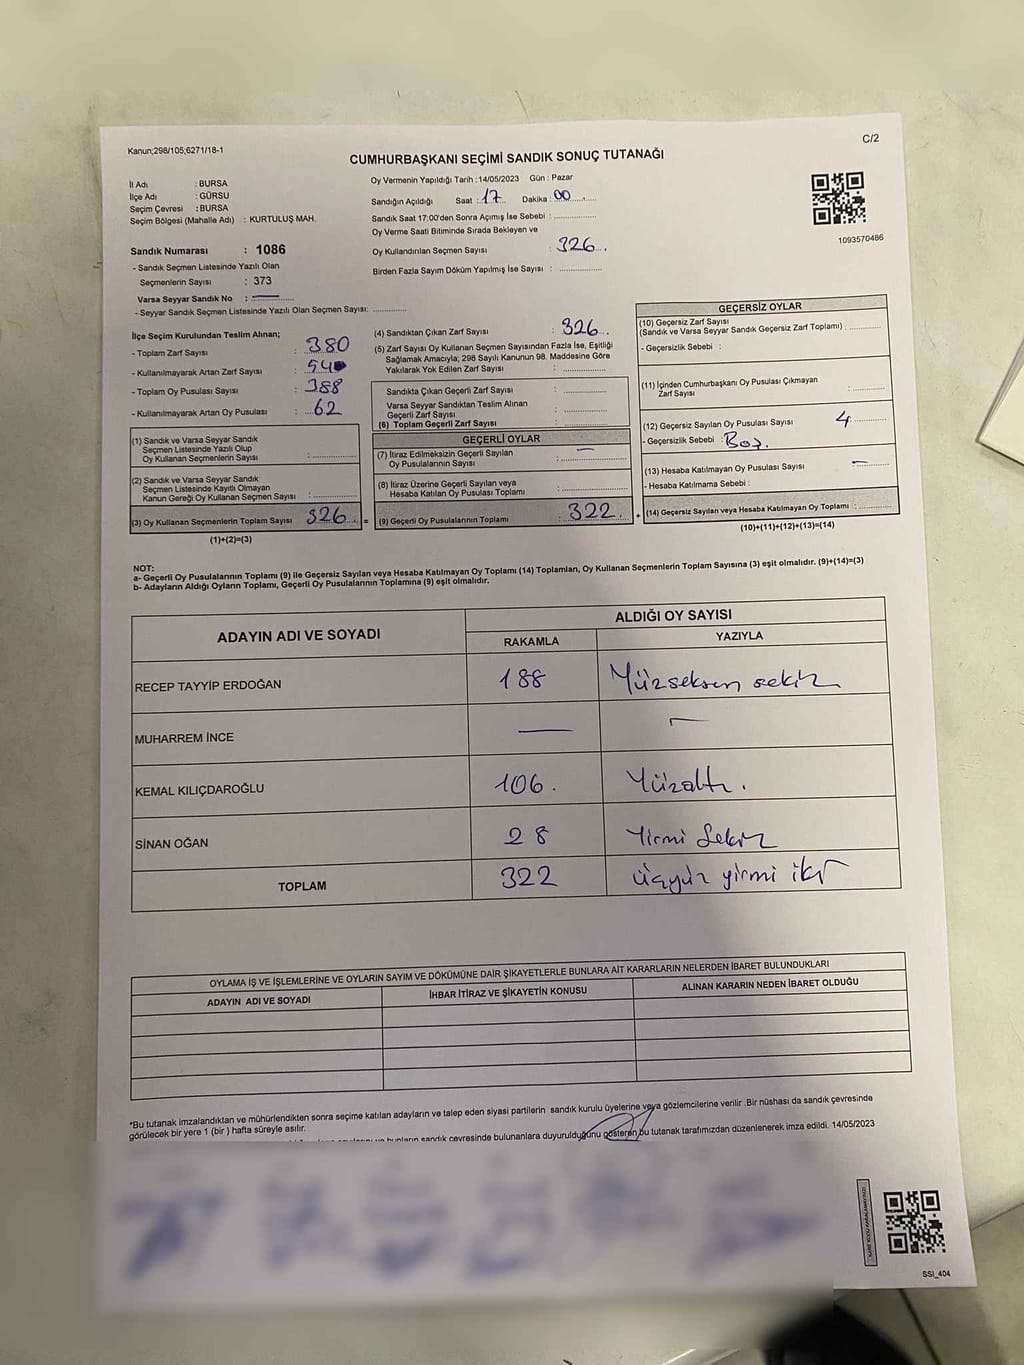 Kanun;298/105;6271/18-1
C/2
CUMHURBAŞKANI SEÇİMİ SANDIK SONUÇ TUTANAĞI
İl Adı : BURSA
İlçe Adı : GÜRSU
Seçim Çevresi : BURSA
Seçim Bölgesi (Mahalle Adı) : KURTULUŞ MAH.
Sandık Numarası : 1086
- Sandık Seçmen Listesinde Yazılı Olan
Seçmenlerin Sayısı : 373
Varsa Seyyar Sandık No :
- Seyyar Sandık Seçmen Listesinde Yazılı Olan Seçmen Sayısı:
Oy Vermenin Yapıldığı Tarih :14/05/2023 Gün : Pazar
Sandığın Açıldığı Saat : 17 Dakika : 00
Sandık Saat 17:00'den Sonra Açımış İse Sebebi :
Oy Verme Saati Bitiminde Sırada Bekleyen ve
Oy Kullandırılan Seçmen Sayısı : 326
Birden Fazla Sayım Döküm Yapılmış İse Sayısı :
1093570486
İlçe Seçim Kurulundan Teslim Alınan;
- Toplam Zarf Sayısı : 380
- Kullanılmayarak Artan Zarf Sayısı : 54
- Toplam Oy Pusulası Sayısı : 388
- Kullanılmayarak Artan Oy Pusulası : 62
(1) Sandık ve Varsa Seyyar Sandık
Seçmen Listesinde Yazılı Olup
Oy Kullanan Seçmenlerin Sayısı :
(2) Sandık ve Varsa Seyyar Sandık
Seçmen Listesinde Kayıtlı Olmayan
Kanun Gereği Oy Kullanan Seçmen Sayısı :
(3) Oy Kullanan Seçmenlerin Toplam Sayısı 326 =
(1)+(2)=(3)
(4) Sandıktan Çıkan Zarf Sayısı : 326
(5) Zarf Sayısı Oy Kullanan Seçmen Sayısından Fazla İse, Eşitliği
Sağlamak Amacıyla; 298 Sayılı Kanunun 98. Maddesine Göre
Yakılarak Yok Edilen Zarf Sayısı :
Sandıkta Çıkan Geçerli Zarf Sayısı :
Varsa Seyyar Sandıktan Teslim Alınan
Geçerli Zarf Sayısı :
(6) Toplam Geçerli Zarf Sayısı :
GEÇERLİ OYLAR
(7) İtiraz Edilmeksizin Geçerli Sayılan
Oy Pusulalarının Sayısı :
(8) İtiraz Üzerine Geçerli Sayılan veya
Hesaba Katılan Oy Pusulası Toplamı :
(9) Geçerli Oy Pusulalarının Toplamı : 322 +
GEÇERSİZ OYLAR
(10) Geçersiz Zarf Sayısı
(Sandık ve Varsa Seyyar Sandık Geçersiz Zarf Toplamı) :
- Geçersizlik Sebebi :
(11) İçinden Cumhurbaşkanı Oy Pusulası Çıkmayan
Zarf Sayısı :
(12) Geçersiz Sayılan Oy Pusulası Sayısı : 4
- Geçersizlik Sebebi : Boş.
(13) Hesaba Katılmayan Oy Pusulası Sayısı : –
- Hesaba Katılmama Sebebi :
(14) Geçersiz Sayılan veya Hesaba Katılmayan Oy Toplamı :
(10)+(11)+(12)+(13)=(14)
NOT:
a- Geçerli Oy Pusulalarının Toplamı (9) ile Geçersiz Sayılan veya Hesaba Katılmayan Oy Toplamı (14) Toplamları, Oy Kullanan Seçmenlerin Toplam Sayısına (3) eşit olmalıdır. (9)+(14)=(3)
b- Adayların Aldığı Oyların Toplamı, Geçerli Oy Pusulalarının Toplamına (9) eşit olmalıdır.
ADAYIN ADI VE SOYADI
ALDIĞI OY SAYISI
RAKAMLA YAZIYLA
RECEP TAYYİP ERDOĞAN 188 Yüzseksen sekiz
MUHARREM İNCE — –
KEMAL KILIÇDAROĞLU 106. Yüzaltı.
SİNAN OĞAN 28 Yirmi Sekiz
TOPLAM 322 üçyüz yirmi iki
OYLAMA İŞ VE İŞLEMLERİNE VE OYLARIN SAYIM VE DÖKÜMÜNE DAİR ŞİKAYETLERLE BUNLARA AİT KARARLARIN NELERDEN İBARET BULUNDUKLARI
ADAYIN ADI VE SOYADI İHBAR İTİRAZ VE ŞİKAYETİN KONUSU ALINAN KARARIN NEDEN İBARET OLDUĞU
*Bu tutanak imzalandıktan ve mühürlendikten sonra seçime katılan adayların ve talep eden siyasi partilerin sandık kurulu üyelerine veya gözlemcilerine verilir .Bir nüshası da sandık çevresinde
görülecek bir yere 1 (bir ) hafta süreyle asılır.
bunların sandık çevresinde bulunanlara duyurulduğunu gösteren bu tutanak tarafımızdan düzenlenerek imza edildi. 14/05/2023
SSİ_404